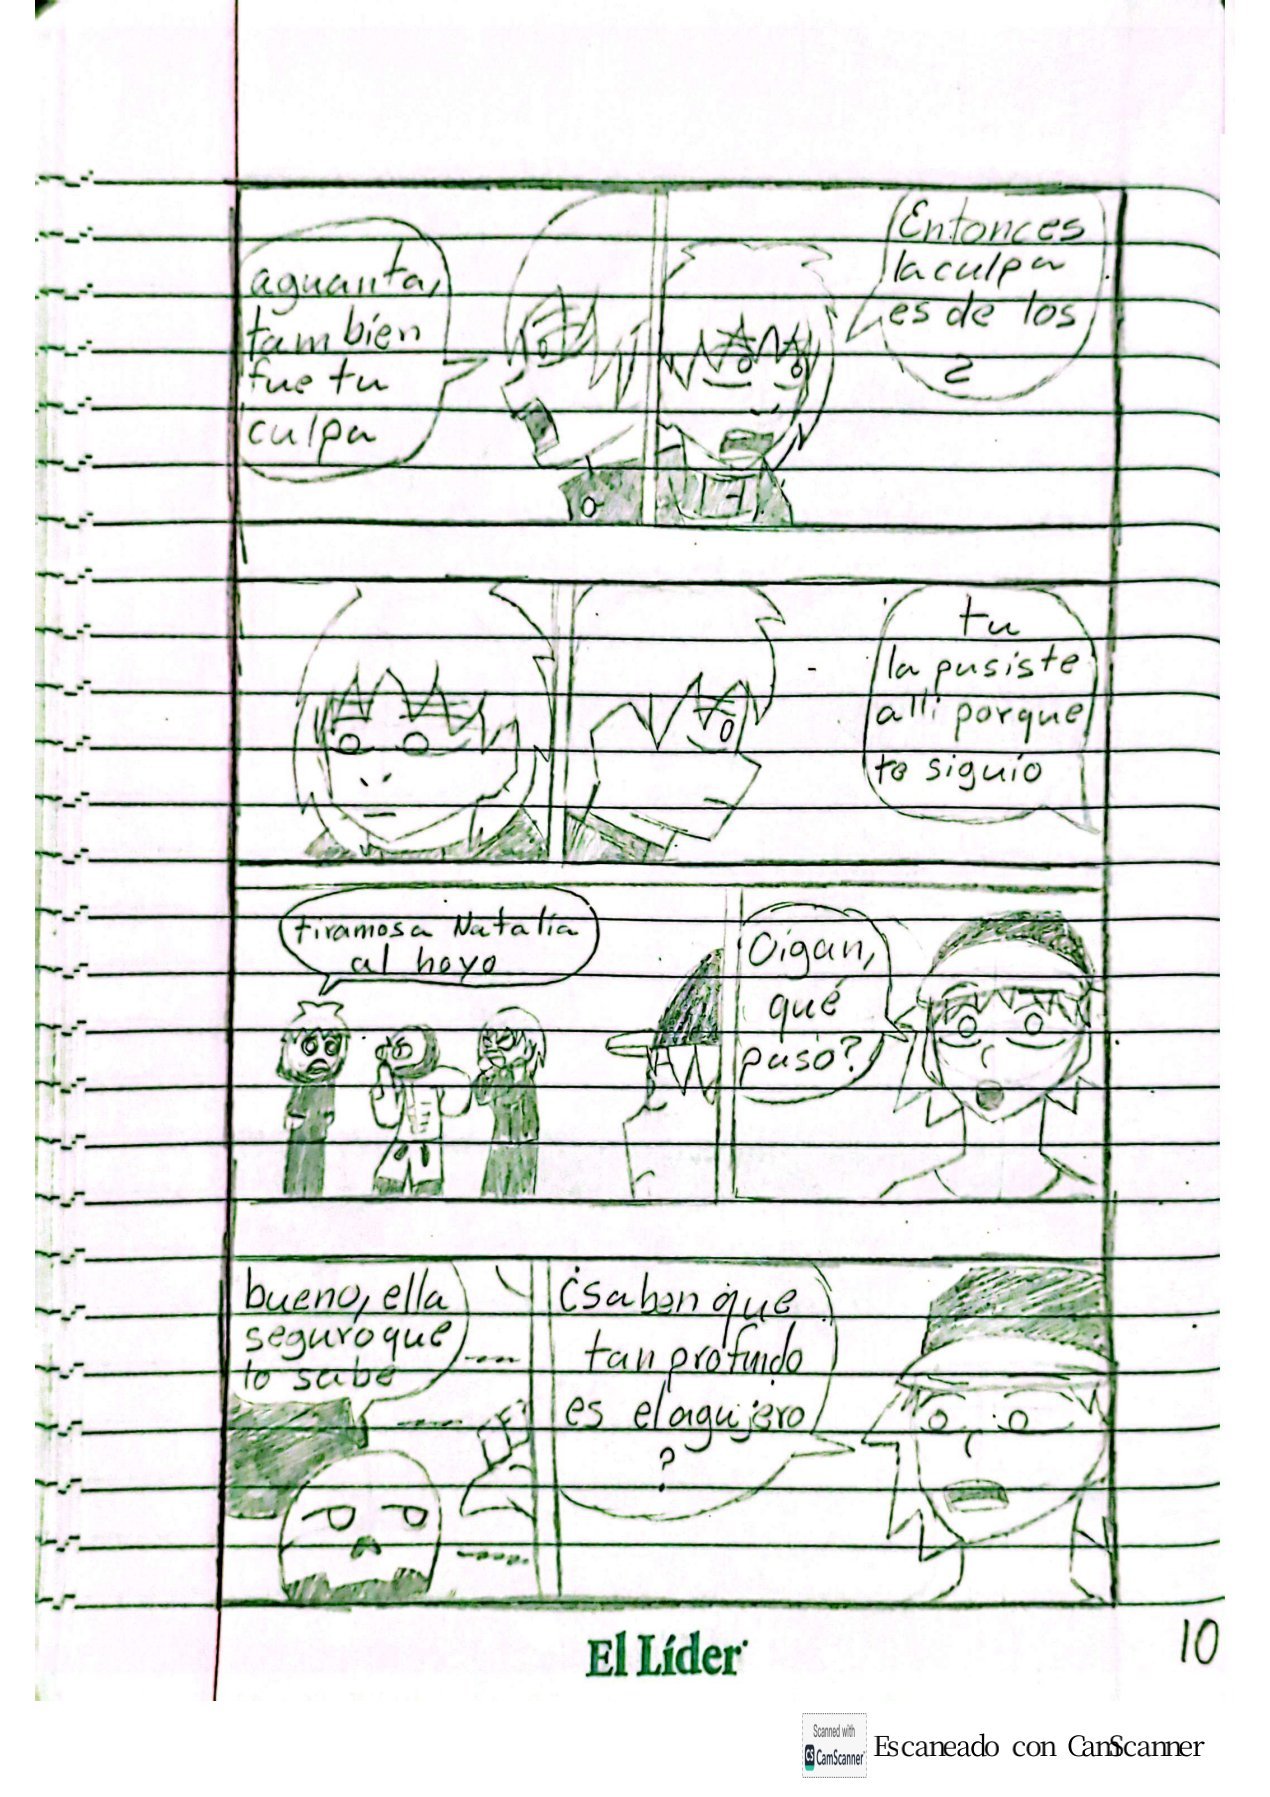 Entonces
la culpa
es de los
2
aguanta,
tambien
fue tu
culpa
tu
la pusiste
alli porque
te siguio
Oigan,
qué
pasó?
tiramos a Natalia
al hoyo
¿saben que
tan profundo
es el agujero
?
bueno, ella
seguro que
lo sabe
El Líder
10
Scanned with
CS CamScanner
Escaneado con CamScanner